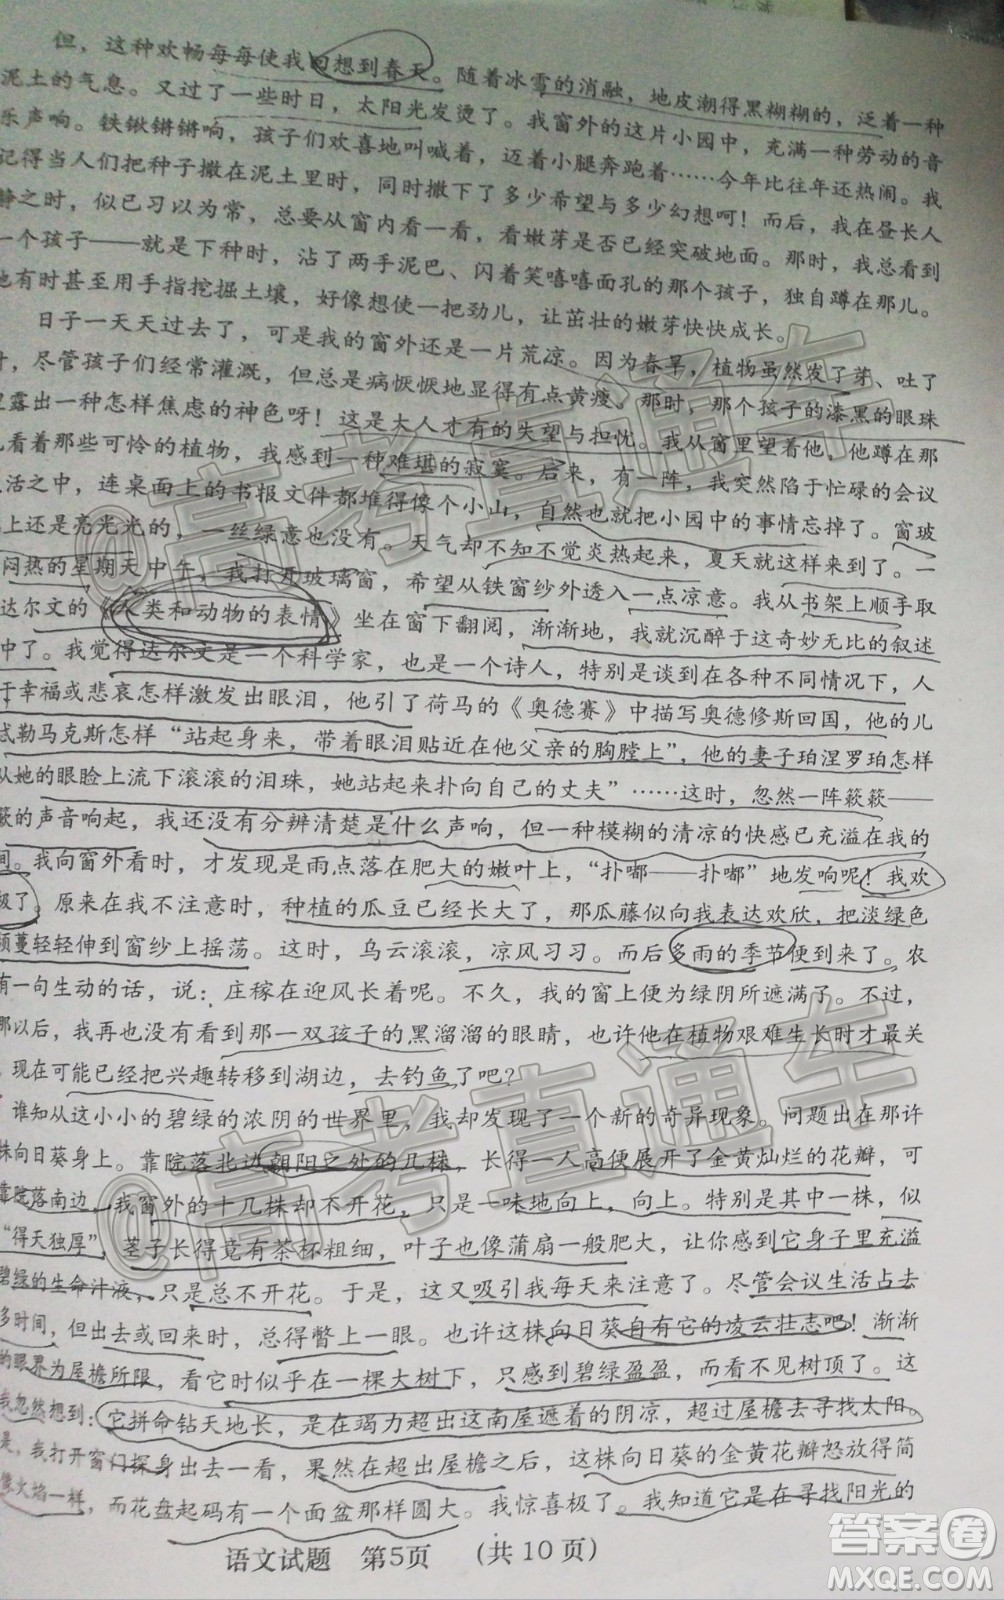 但，这种欢畅每每使我回想到春天。随着冰雪的消融，地皮潮得黑糊糊的，泛着一种
泥土的气息。又过了一些时日，太阳光发烫了。我窗外的这片小园中，充满一种劳动的音
乐声响。铁锹锵锵响，孩子们欢喜地叫喊着，迈着小腿奔跑着……今年比往年还热闹。我
记得当人们把种子撒在泥土里时，同时撒下了多少希望与多少幻想呵！而后，我在昼长人
静之时，似已习以为常，总要从窗内看一看，看嫩芽是否已经突破地面。那时，我总看到
一个孩子——就是下种时，沾了两手泥巴、闪着笑嘻嘻面孔的那个孩子，独自蹲在那儿。
他有时甚至用手指挖掘土壤，好像想使一把劲儿，让茁壮的嫩芽快快成长。
日子一天天过去了，可是我的窗外还是一片荒凉。因为春旱，植物虽然发了芽、吐了
叶，尽管孩子们经常灌溉，但总是病恹恹地显得有点黄瘦。那时，那个孩子的漆黑的眼珠
里露出一种怎样焦虑的神色呀！这是大人才有的失望与担忧。我从窗里望着他，他蹲在那
儿看着那些可怜的植物，我感到一种难堪的寂寞。后来，有一阵，我突然陷于忙碌的会议
生活之中，连桌面上的书报文件都堆得像个小山，自然也就把小园中的事情忘掉了。窗玻
上还是亮光光的，一丝绿意也没有。天气却不知不觉炎热起来，夏天就这样来到了。一
闷热的星期天中午，我打开玻璃窗，希望从铁窗纱外透入一点凉意。我从书架上顺手取
达尔文的《人类和动物的表情》坐在窗下翻阅，渐渐地，我就沉醉于这奇妙无比的叙述
中了。我觉得达尔文是一个科学家，也是一个诗人，特别是谈到在各种不同情况下，人
于幸福或悲哀怎样激发出眼泪，他引了荷马的《奥德赛》中描写奥德修斯回国，他的儿
忒勒马克斯怎样“站起身来，带着眼泪贴近在他父亲的胸膛上”，他的妻子珀涅罗珀怎样
从她的眼脸上流下滚滚的泪珠，她站起来扑向自己的丈夫”……这时，忽然一阵簌簌——
簌的声音响起，我还没有分辨清楚是什么声响，但一种模糊的清凉的快感已充溢在我的
间。我向窗外看时，才发现是雨点落在肥大的嫩叶上，“扑嘟——扑嘟”地发响呢！我欢
极了。原来在我不注意时，种植的瓜豆已经长大了，那瓜藤似向我表达欢欣，把淡绿色
须蔓轻轻伸到窗纱上摇荡。这时，乌云滚滚，凉风习习。而后多雨的季节便到来了。农
有一句生动的话，说：庄稼在迎风长着呢。不久，我的窗上便为绿阴所遮满了。不过，
那以后，我再也没有看到那一双孩子的黑溜溜的眼睛，也许他在植物艰难生长时才最关
，现在可能已经把兴趣转移到湖边，去钓鱼了吧？
谁知从这小小的碧绿的浓阴的世界里，我却发现了一个新的奇异现象。问题出在那许
株向日葵身上。靠院落北边朝阳之处的几株，长得一人高便展开了金黄灿烂的花瓣，可
靠院落南边，我窗外的十几株却不开花，只是一味地向上，向上。特别是其中一株，似
“得天独厚”，茎子长得竟有茶杯粗细，叶子也像蒲扇一般肥大，让你感到它身子里充溢
碧绿的生命汁液，只是总不开花。于是，这又吸引我每天来注意了。尽管会议生活占去
多时间，但出去或回来时，总得瞥上一眼。也许这株向日葵自有它的凌云壮志吧！渐渐
的眼界为屋檐所限，看它时似乎在一棵大树下，只感到碧绿盈盈，而看不见树顶了。这
我忽然想到：它拼命钻天地长，是在竭力超出这南屋遮着的阴凉，超过屋檐去寻找太阳。
是，我打开窗门探身出去一看，果然在超出屋檐之后，这株向日葵的金黄花瓣怒放得简
像火焰一样，而花盘起码有一个面盆那样圆大。我惊喜极了。我知道它是在寻找阳光的
语文试题 第5页 （共10页）
@高考直通车
@高考直通车
答案圈
MXQE.COM